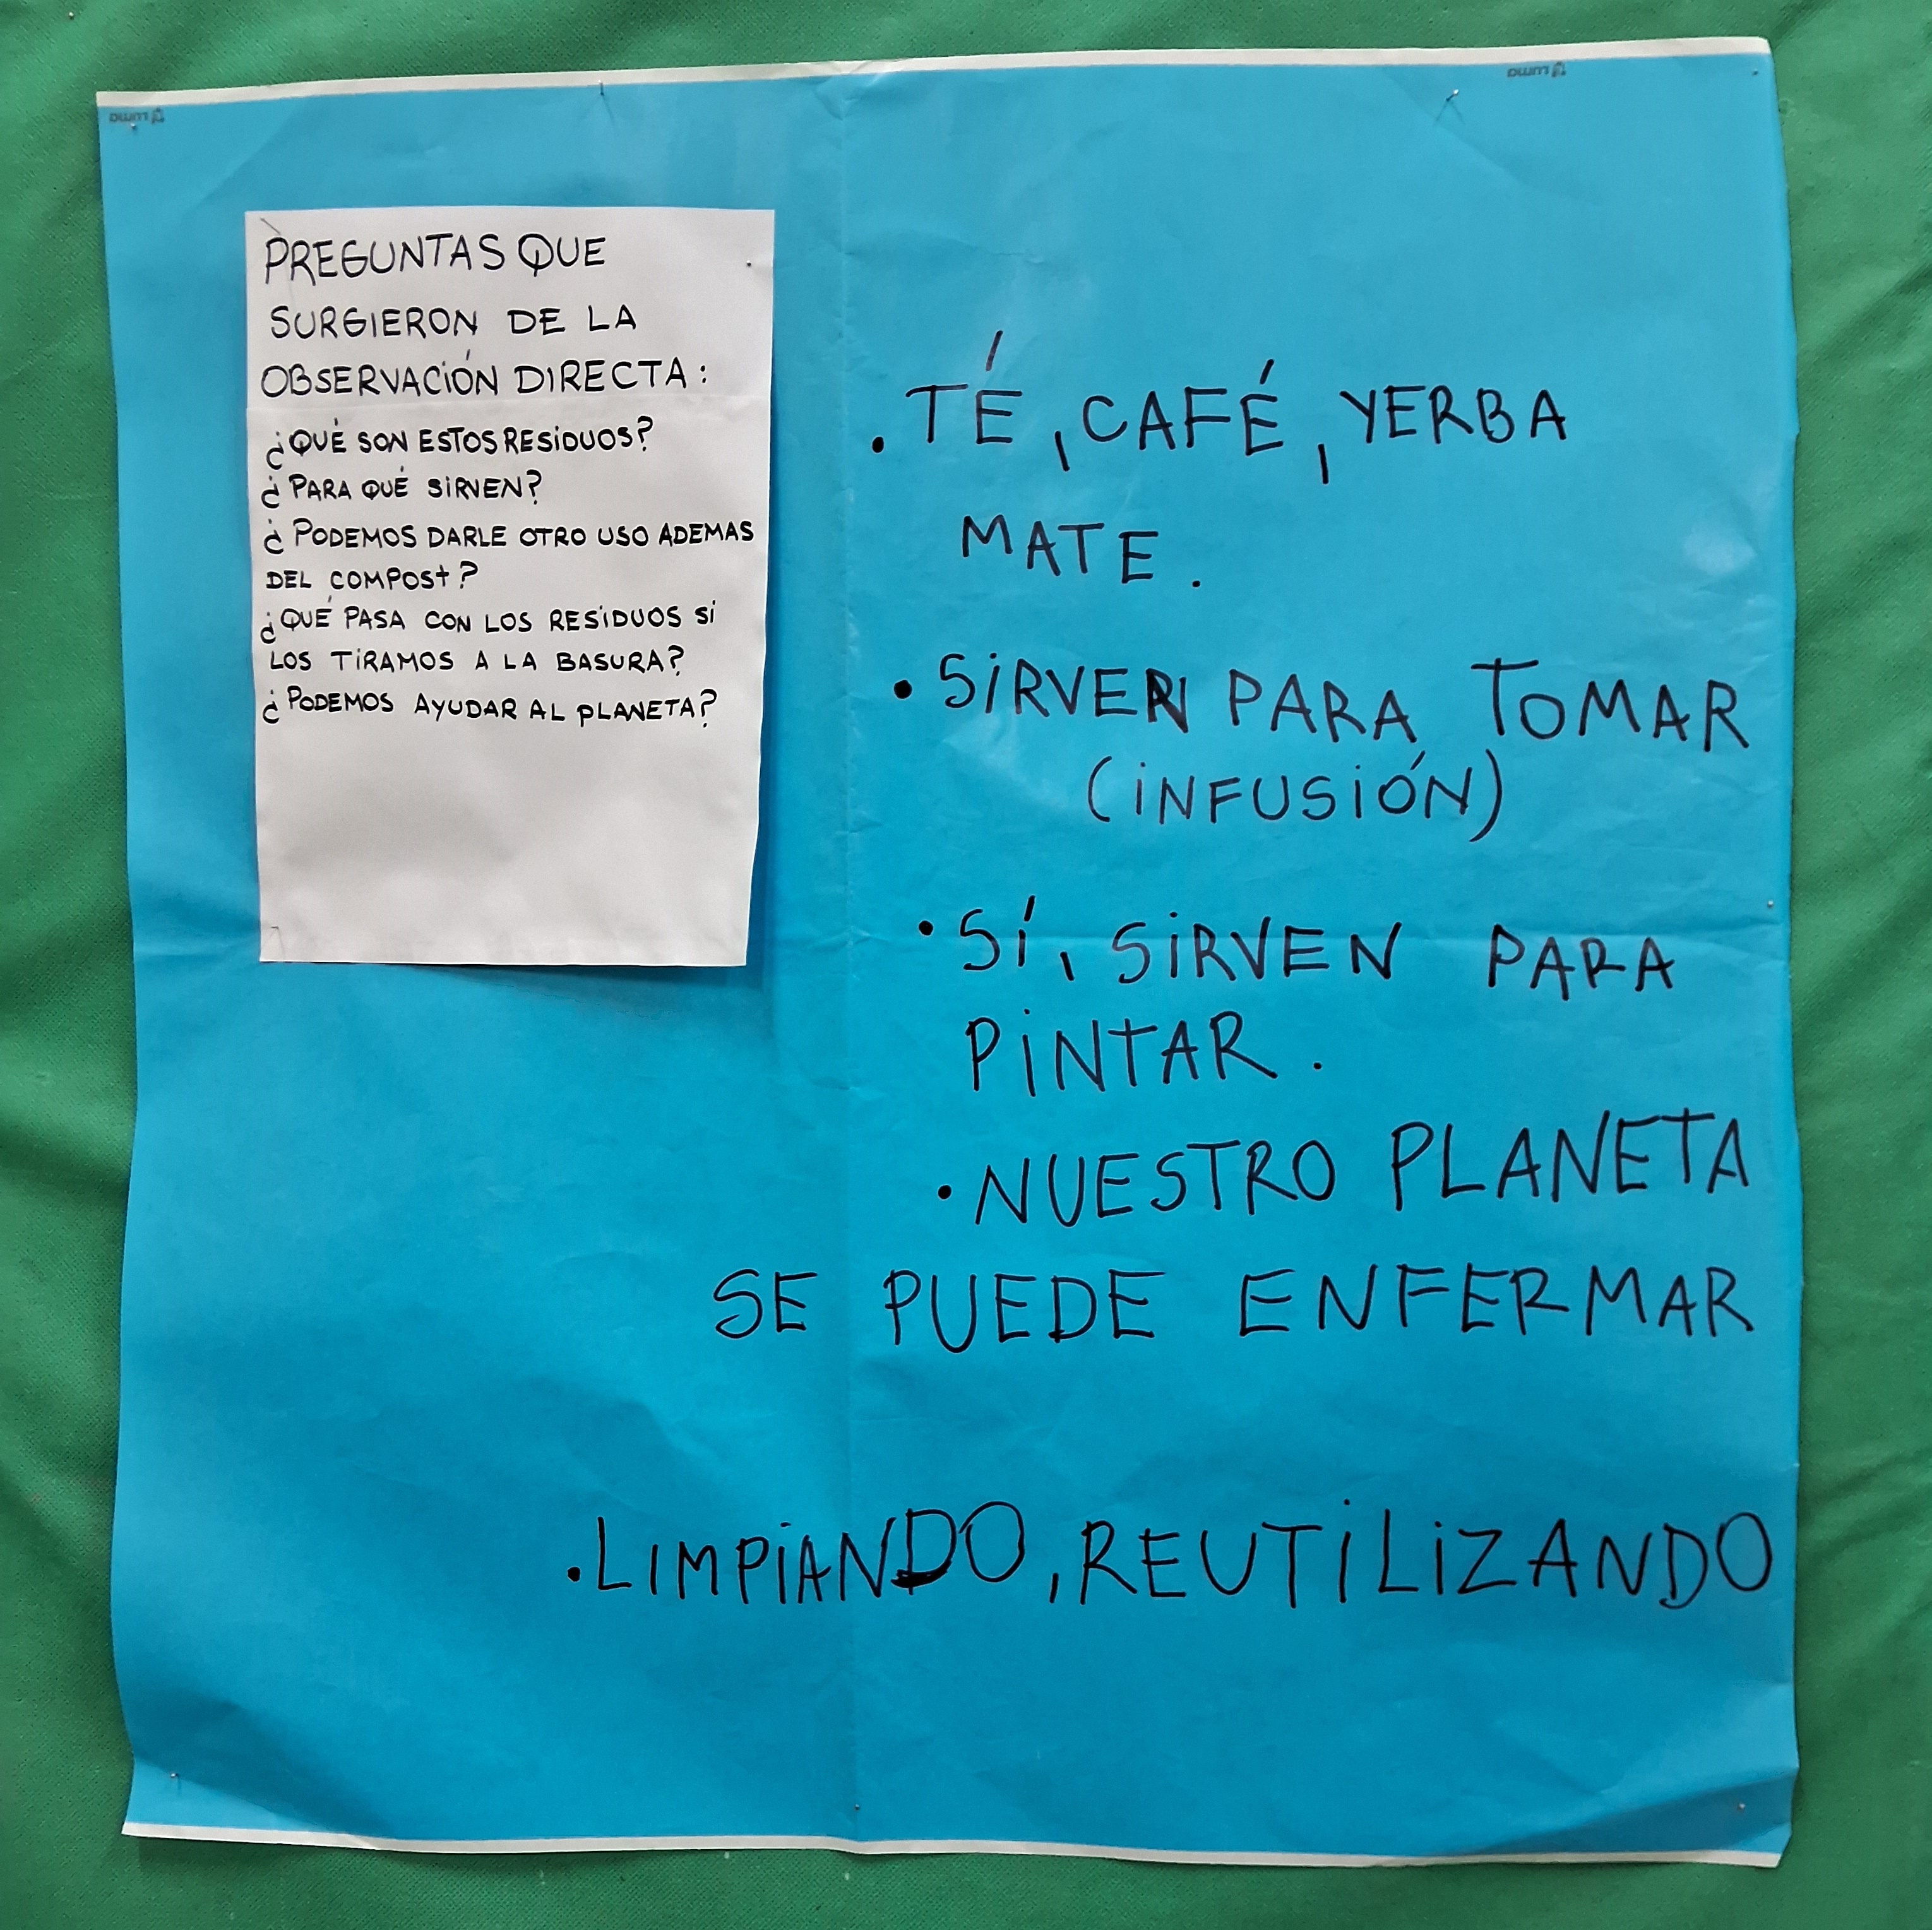 PREGUNTAS QUE
SURGIERON DE LA
OBSERVACIÓN DIRECTA:
¿QUÉ SON ESTOS RESIDUOS?
¿PARA QUÉ SIRVEN?
¿PODEMOS DARLE OTRO USO ADEMAS
DEL COMPOST?
¿QUÉ PASA CON LOS RESIDUOS SI
LOS TIRAMOS A LA BASURA?
¿PODEMOS AYUDAR AL PLANETA?
. TÉ, CAFÉ, YERBA
MATE.
• SIRVEN PARA TOMAR
(INFUSIÓN)
• SÍ, SIRVEN PARA
PINTAR.
• NUESTRO PLANETA
SE PUEDE ENFERMAR
. LIMPIANDO, REUTILIZANDO
luma
luma